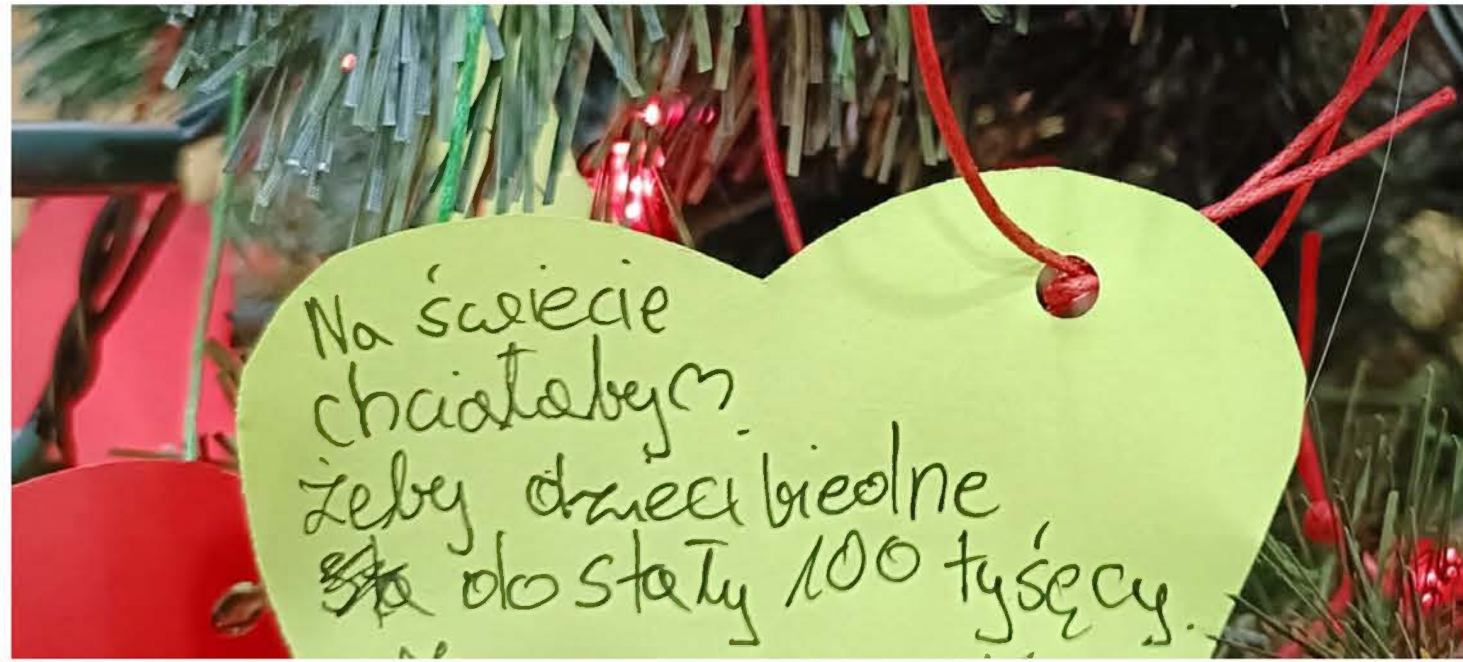 Na świecie
chciałabym
żeby dzieci biedne
dostały 100 tyśęcy.